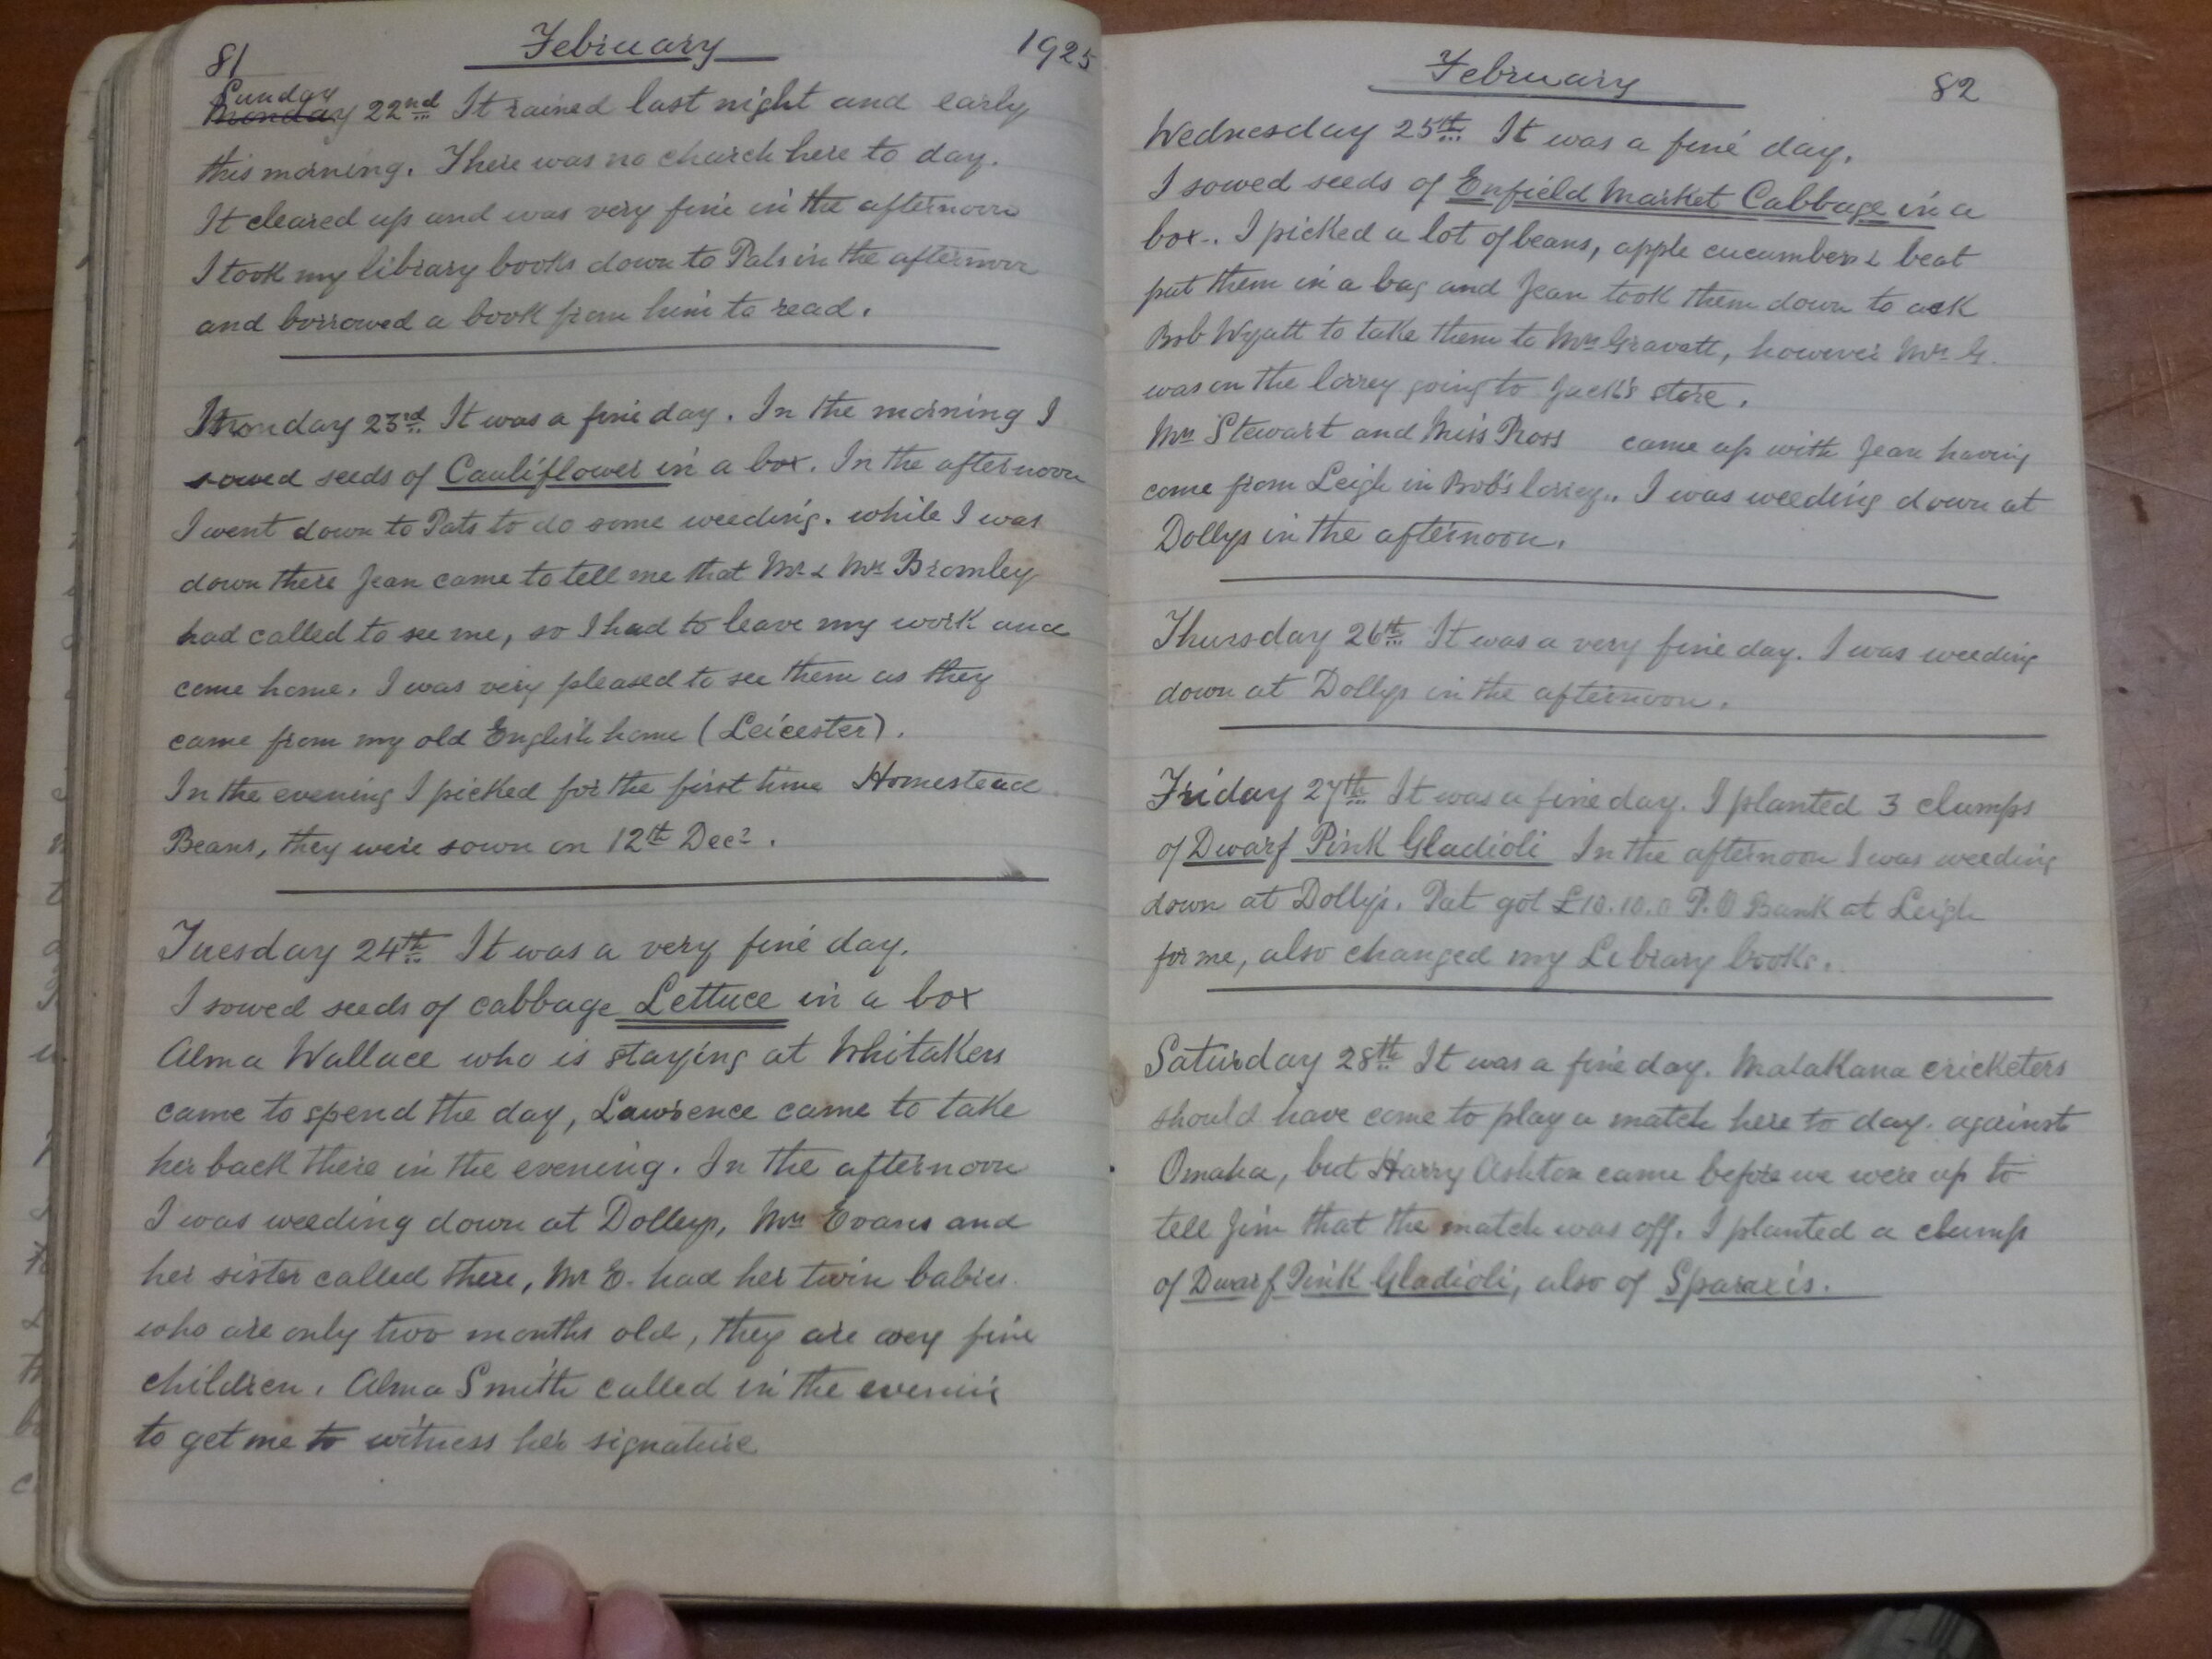 81 February 1925
Sunday
Monday 22nd It rained last night and early
this morning. There was no church here to day.
It cleared up and was very fine in the afternoon
I took my library books down to Pats in the afternoon
and borrowed a book from him to read.
Monday 23rd It was a fine day. In the morning I
sowed seeds of Cauliflower in a box. In the afternoon
I went down to Pats to do some weeding. while I was
down there Jean came to tell me that Mr & Mrs Bromley
had called to see me, so I had to leave my work and
come home. I was very pleased to see them as they
came from my old English home (Leicester).
In the evening I picked for the first time Homestead
Beans, they were sown on 12th Decr.
Tuesday 24th It was a very fine day.
I sowed seeds of cabbage Lettuce in a box
Alma Wallace who is staying at Whitakers
came to spend the day, Lawrence came to take
her back there in the evening. In the afternoon
I was weeding down at Dollys, Mrs Evans and
her sister called there, Mrs E. had her twin babies
who are only two months old, they are very fine
children. Alma Smith called in the evening
to get me to witness her signature
February 82
Wednesday 25th It was a fine day.
I sowed seeds of Enfield Market Cabbage in a
box. I picked a lot of beans, apple cucumbers & beat
put them in a bag and Jean took them down to ask
Bob Wyatt to take them to Mrs Gravatt, however Mrs G.
was on the lorrey going to Jack's store.
Mrs Stewart and Miss Pross came up with Jean having
come from Leigh in Bob's lorrey. I was weeding down at
Dollys in the afternoon.
Thursday 26th It was a very fine day. I was weeding
down at Dollys in the afternoon.
Friday 27th It was a fine day. I planted 3 clumps
of Dwarf Pink Gladioli In the afternoon I was weeding
down at Dolly's. Pat got £10.10.0 P.O Bank at Leigh
for me, also changed my Library books.
Saturday 28th It was a fine day. Matakana cricketers
should have come to play a match here to day. against
Omaha, but Harry Ashton came before we were up to
tell Jim that the match was off. I planted a clump
of Dwarf Pink Gladioli, also of Sparaxis.